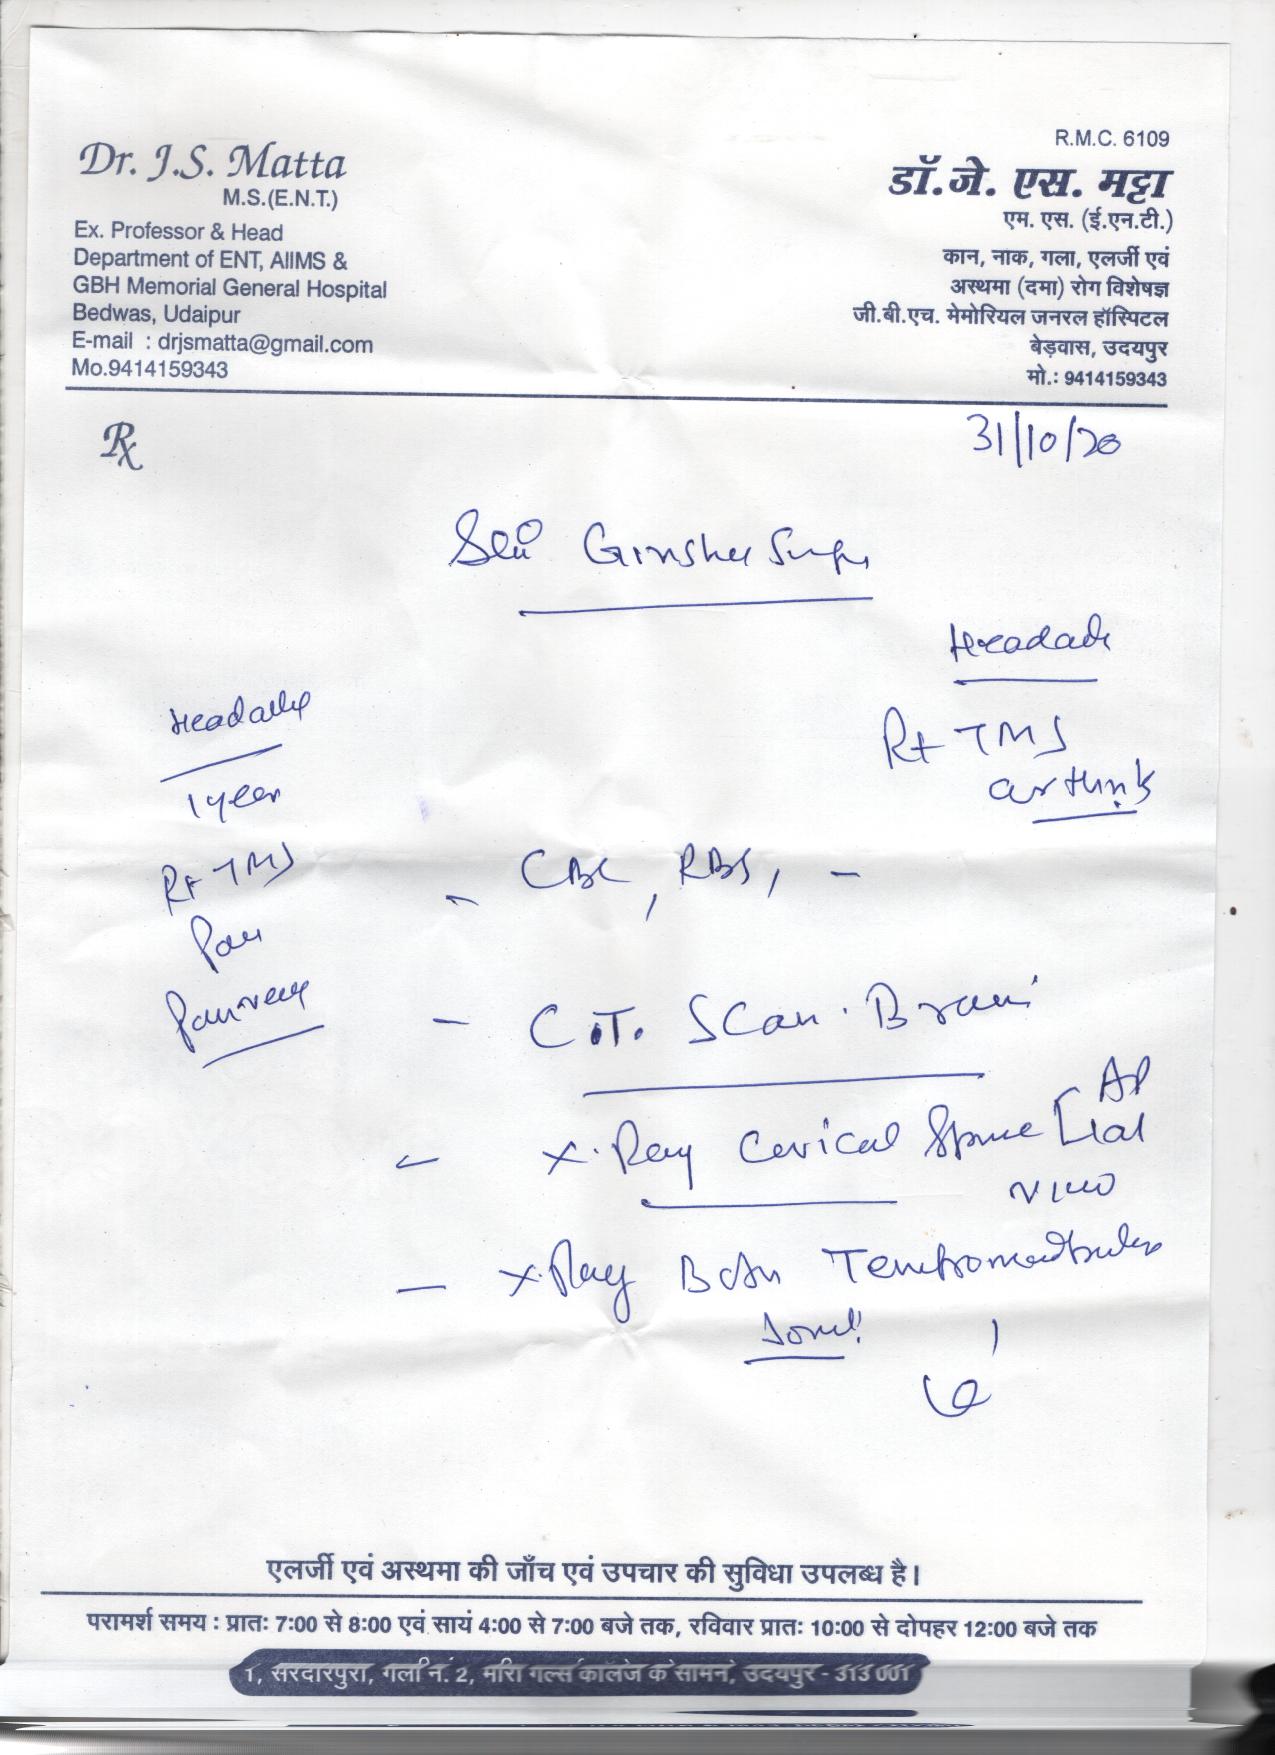 R.M.C. 6109
Dr. J.S. Matta
M.S.(E.N.T.)
Ex. Professor & Head
Department of ENT, AIIMS &
GBH Memorial General Hospital
Bedwas, Udaipur
E-mail : drjsmatta@gmail.com
Mo.9414159343
डॉ.जे. एस. मट्टा
एम. एस. (ई.एन.टी.)
कान, नाक, गला, एलर्जी एवं
अस्थमा (दमा) रोग विशेषज्ञ
जी.बी.एच. मेमोरियल जनरल हॉस्पिटल
बेड़वास, उदयपुर
मो.: 9414159343
Rx
31/10/20
Headache
Rt TMJ
arthritis
Headache
1 year
Rt TMJ
Pain
- CBC, RBS, -
- C.T. Scan. Brain
- X.Ray Cervical Spine [AP
Lat
view
- X.Ray Both Temporomandibular
Joint
एलर्जी एवं अस्थमा की जाँच एवं उपचार की सुविधा उपलब्ध है।
परामर्श समय : प्रातः 7:00 से 8:00 एवं सायं 4:00 से 7:00 बजे तक, रविवार प्रातः 10:00 से दोपहर 12:00 बजे तक
1, सरदारपुरा, गली नं. 2, मीरा गर्ल्स कॉलेज के सामने, उदयपुर - 313 001